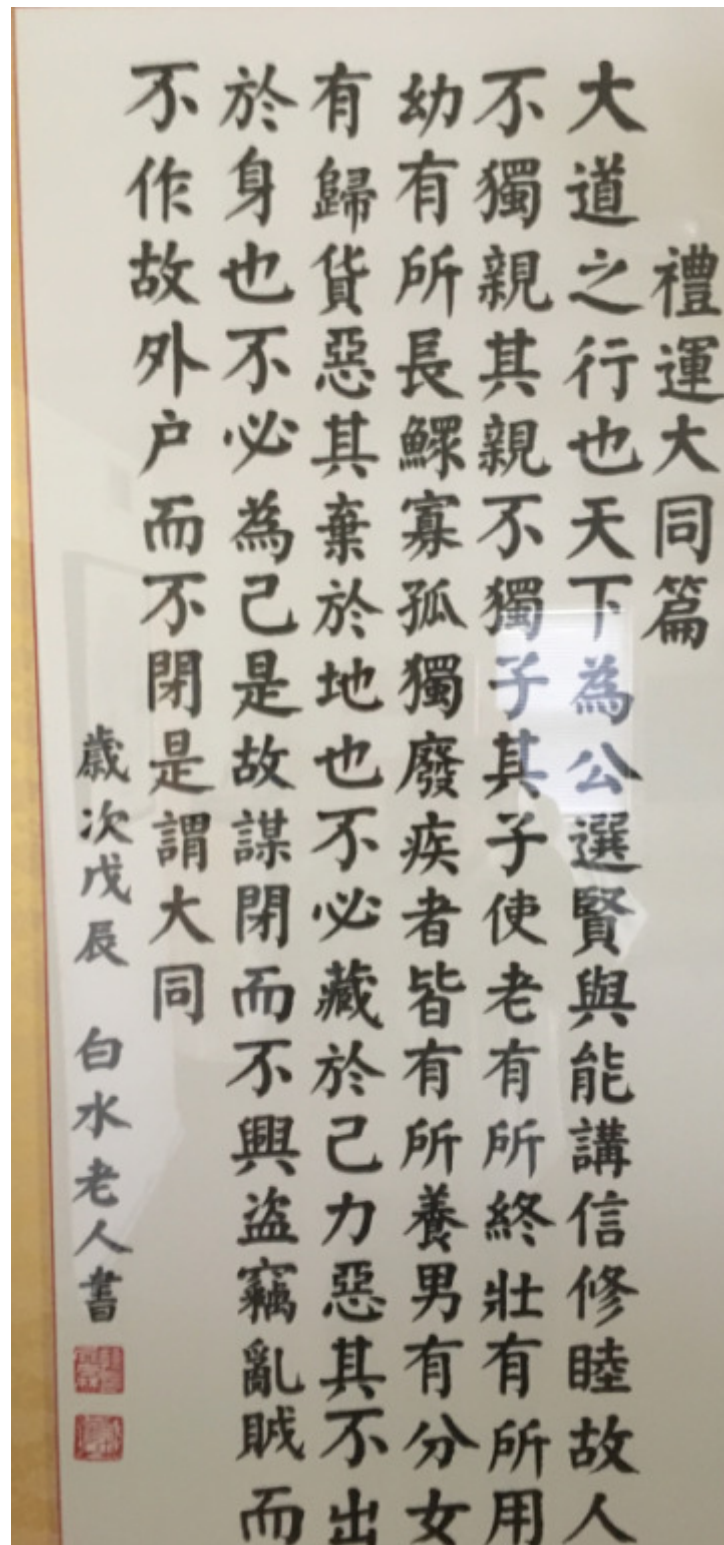 禮運大同篇
大道之行也天下為公選賢與能講信修睦故人
不獨親其親不獨子其子使老有所終壯有所用
幼有所長鰥寡孤獨廢疾者皆有所養男有分女
有歸貨惡其棄於地也不必藏於己力惡其不出
於身也不必為己是故謀閉而不興盜竊亂賊而
不作故外户而不閉是謂大同
歲次戊辰 白水老人書